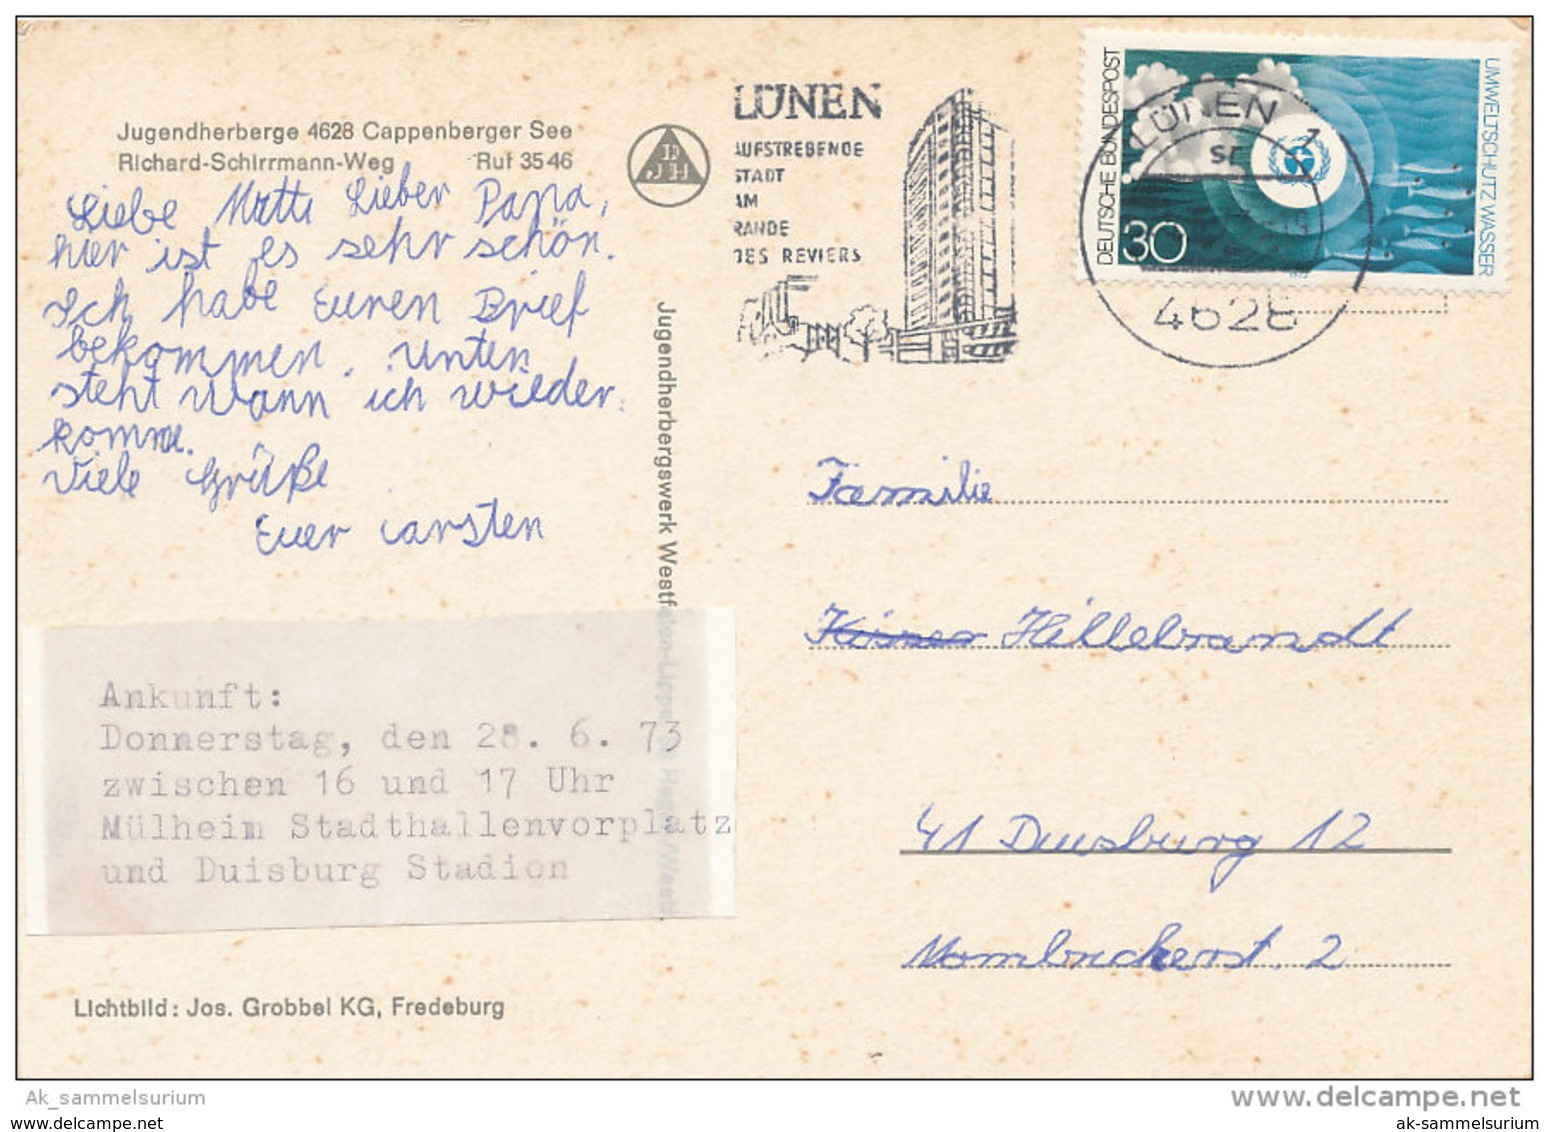 Jugendherberge 4628 Cappenberger See
Richard-Schirrmann-Weg Ruf 35 46
Liebe Mutti Lieber Papa,
hier ist es sehr schön.
Ich habe Euren Brief
bekommen. Unten
steht wann ich wieder
komme.
Viele Grüße
Euer Carsten
Ankunft:
Donnerstag, den 28. 6. 73
zwischen 16 und 17 Uhr
Mülheim Stadthallenvorplatz
und Duisburg Stadion
Lichtbild: Jos. Grobbel KG, Fredeburg
Jugendherbergswerk Westfalen-Lippe
LÜNEN
AUFSTREBENDE
STADT
AM
RANDE
DES REVIERS
DEUTSCHE BUNDESPOST
30
UMWELTSCHUTZ WASSER
LÜNEN 1
4628
Familie
Hillebrandt
41 Duisburg 12
2
Ak_sammelsurium
www.delcampe.net
www.ak-sammelsurium.com
ak-sammelsurium